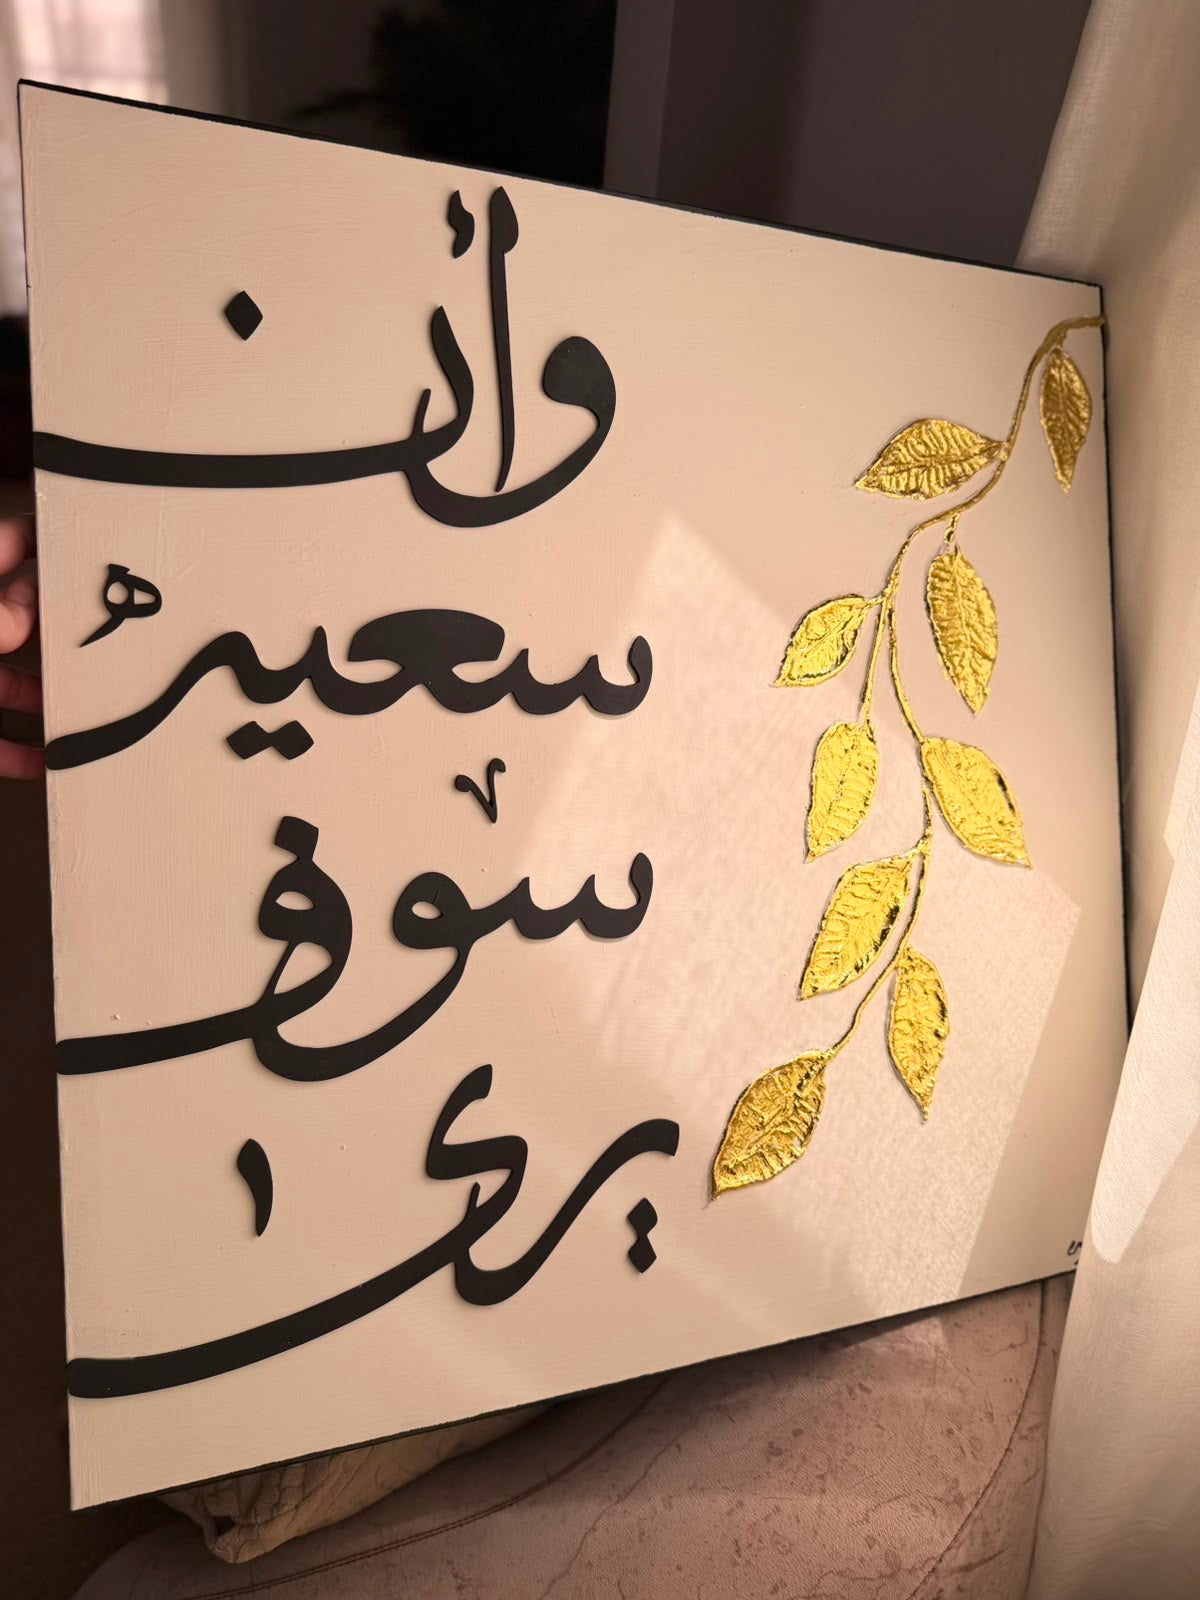 وأن
سعيهُ
سوف
يرى